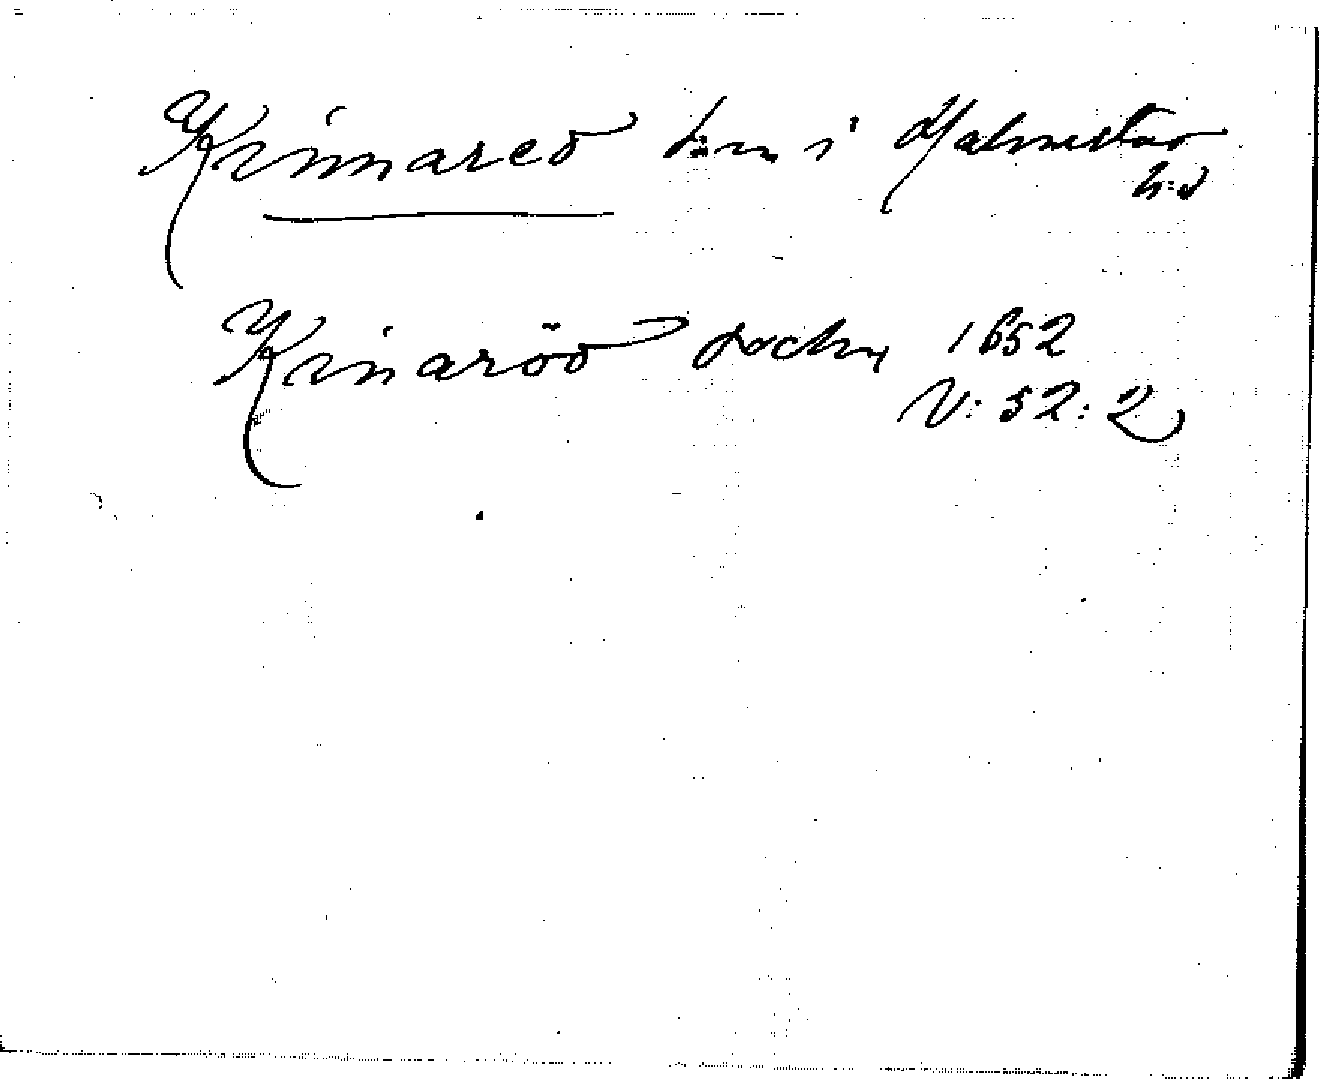 Kinnared sn i Halmstad
h:d
Kinaröd sochn 1652
V: 52: 2